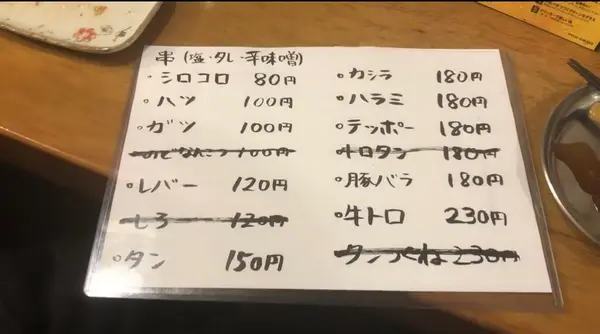 串(塩・タレ・辛味噌)
・シロコロ 80円
・ハツ 100円
・ガツ 100円
のどなんこつ 100円
・レバー 120円
しろ 120円
・タン 150円
・カシラ 180円
・ハラミ 180円
・テッポー 180円
180円
・豚バラ 180円
・牛トロ 230円
タンつくね 230円